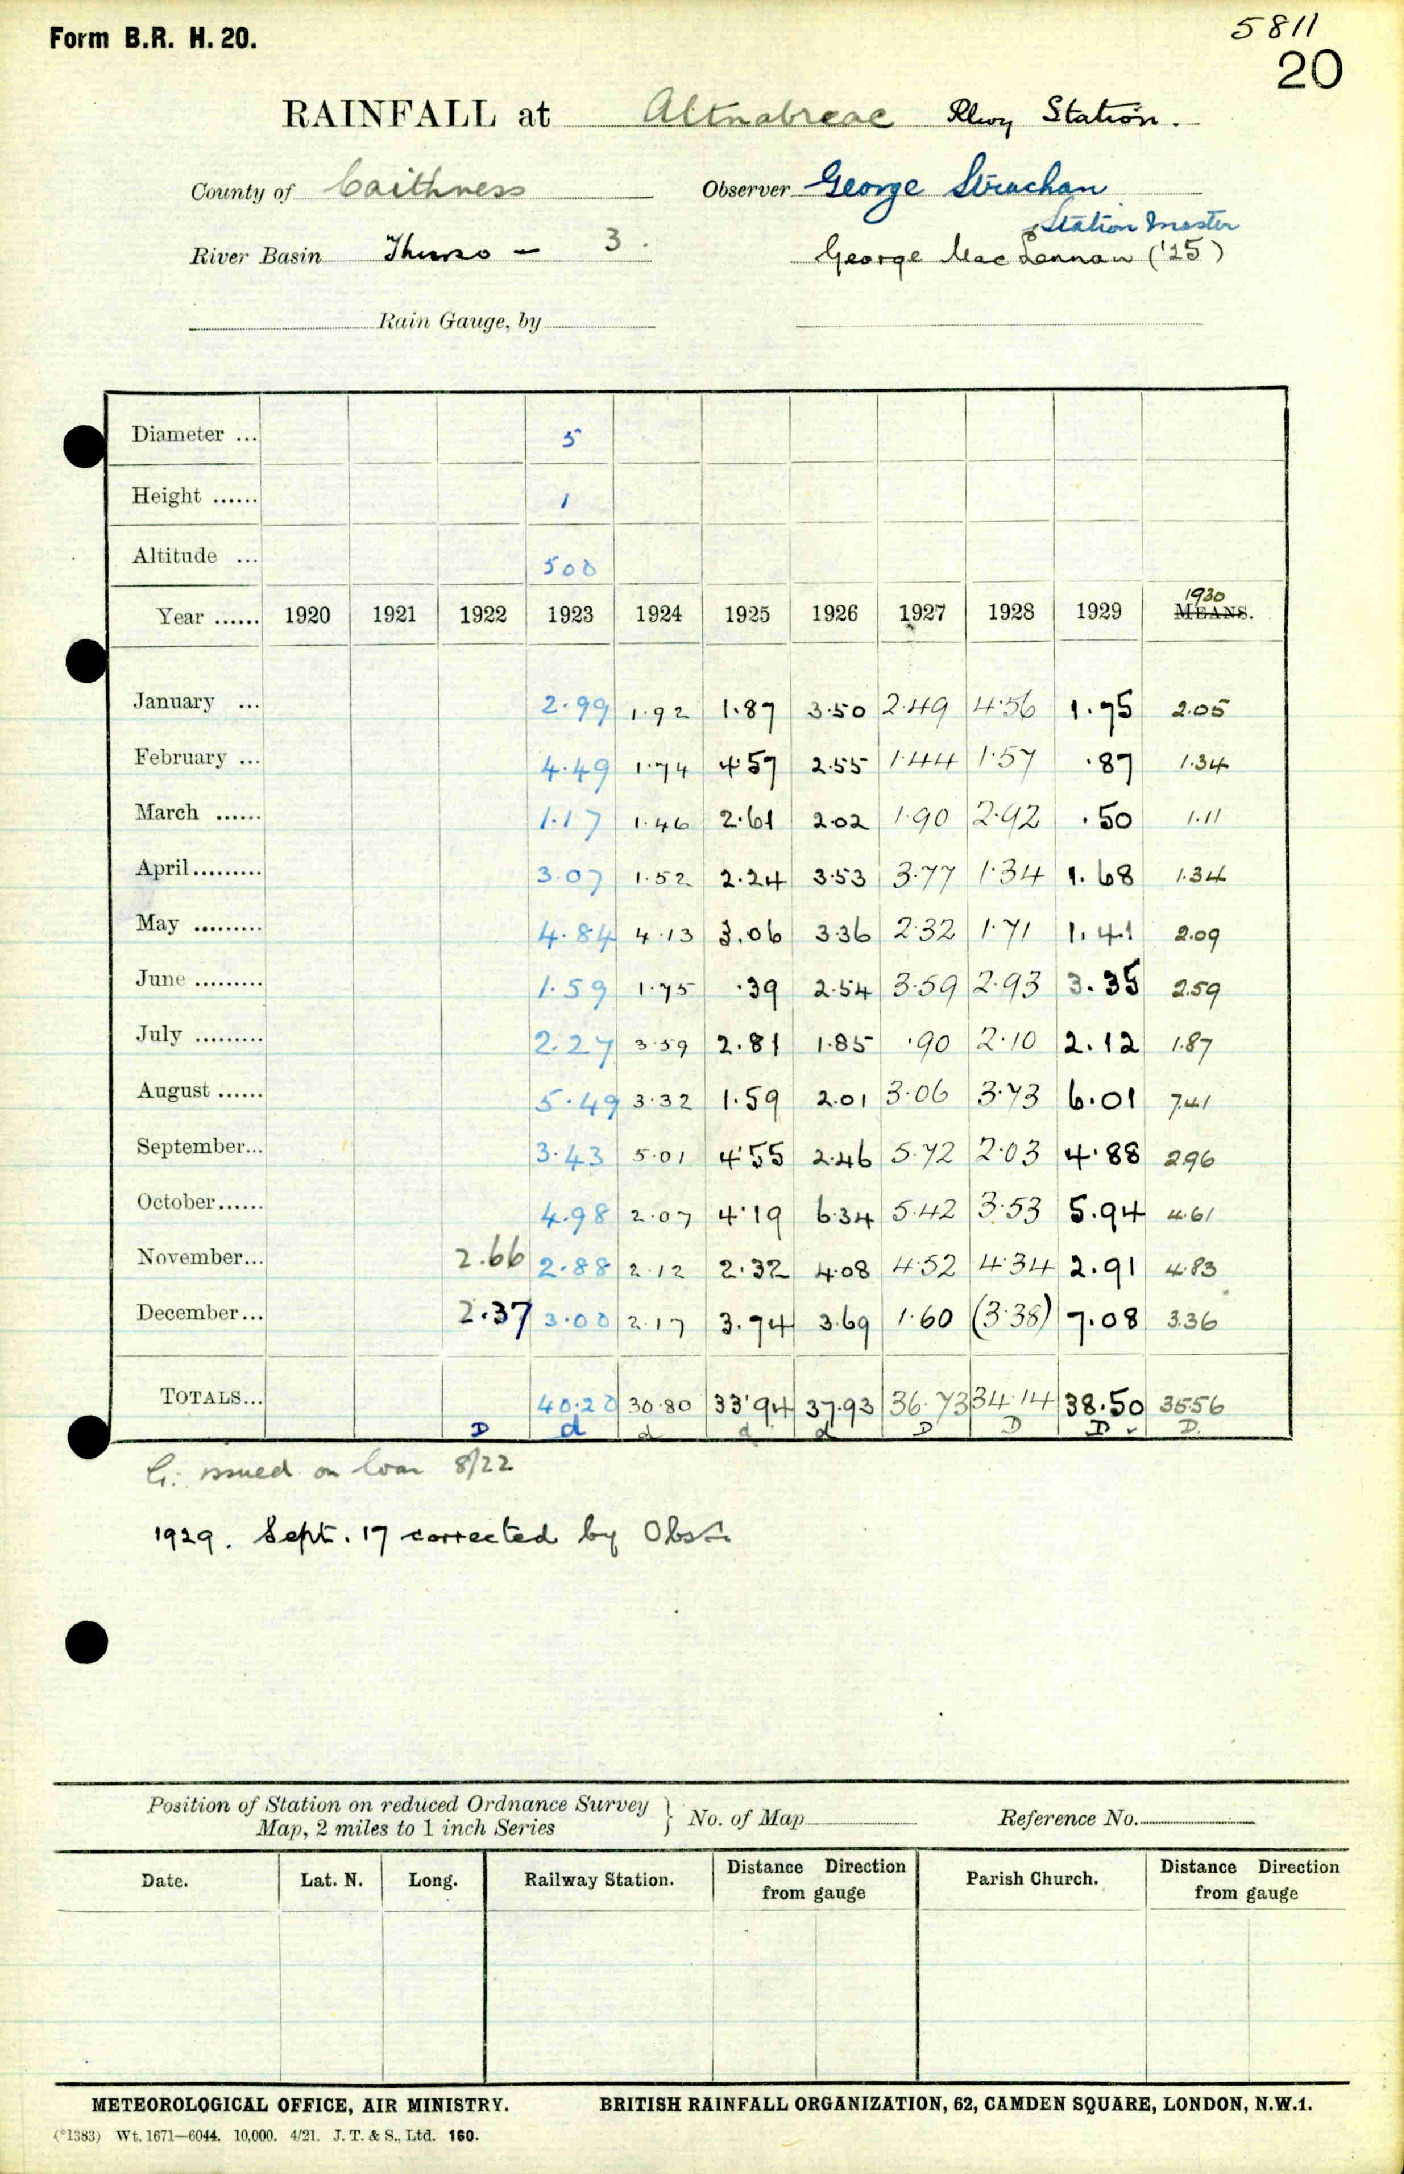 Form B.R. H. 20.
5811
20
RAINFALL at Altnabreac Rlwy Station.
County of Caithness Observer George Strachan
Station Master
River Basin Thurso – 3. George MacLennan ('25)
Rain Gauge, by
Diameter ... 5
Height ...... 1
Altitude ... 500
1930
Year ...... 1920 1921 1922 1923 1924 1925 1926 1927 1928 1929 MEANS.
January ... 2.99 1.92 1.87 3.50 2.49 4.56 1.75 2.05
February ... 4.49 1.74 4.57 2.55 1.44 1.57 .87 1.34
March ...... 1.17 1.46 2.61 2.02 1.90 2.92 .50 1.11
April......... 3.07 1.52 2.24 3.53 3.77 1.34 1.68 1.34
May ......... 4.84 4.13 3.06 3.36 2.32 1.71 1.41 2.09
June ......... 1.59 1.75 .39 2.54 3.59 2.93 3.35 2.59
July ......... 2.27 3.59 2.81 1.85 .90 2.10 2.12 1.87
August ...... 5.49 3.32 1.59 2.01 3.06 3.73 6.01 7.41
September... 3.43 5.01 4.55 2.46 5.72 2.03 4.88 2.96
October...... 4.98 2.07 4.19 6.34 5.42 3.53 5.94 4.61
November... 2.66 2.88 2.12 2.32 4.08 4.52 4.34 2.91 4.83
December... 2.37 3.00 2.17 3.74 3.69 1.60 (3.38) 7.08 3.36
TOTALS... 40.20 30.80 33.94 37.93 36.73 34.14 38.50 35.56
D d d d d D D D D.
G. issued on loan 8/22
1929. Sept. 17 corrected by Obsr.
Position of Station on reduced Ordnance Survey
Map, 2 miles to 1 inch Series } No. of Map Reference No.
Date. Lat. N. Long. Railway Station. Distance Direction from gauge Parish Church. Distance Direction from gauge
METEOROLOGICAL OFFICE, AIR MINISTRY. BRITISH RAINFALL ORGANIZATION, 62, CAMDEN SQUARE, LONDON, N.W.1.
(*1383) Wt. 1671—6044. 10,000. 4/21. J. T. & S., Ltd. 160.